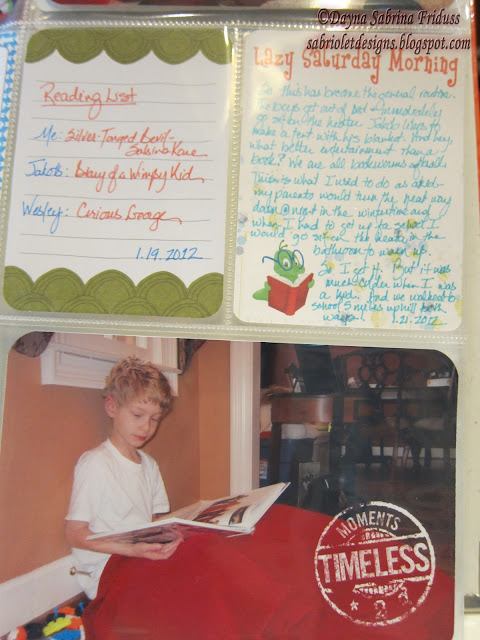 ©Dayna Sabrina Friduss
sabrioletdesigns.blogspot.com
Reading List
Me: Silver-Tongued Devil-
Sabrina Kane
Jakob: Diary of a Wimpy Kid
Wesley: Curious George
1.19.2012
Lazy Saturday Morning
So this has become the general routine.
The boys get out of bed & immediately
go set on the heater. Jakob likes to
make a tent with his blanket. And hey,
what better entertainment than a
book? We are all bookworms afterall.
That's what I used to do as a kid-
my parents would turn the heat way
down @ night in the wintertime and
when I had to get up to school I
would go set on the heater in the
bathroom to warm up.
So I get it. But it was
much colder when I was
a kid. And we walked to
school 5 miles uphill both
ways. 1.21.2012
MOMENTS
TIMELESS